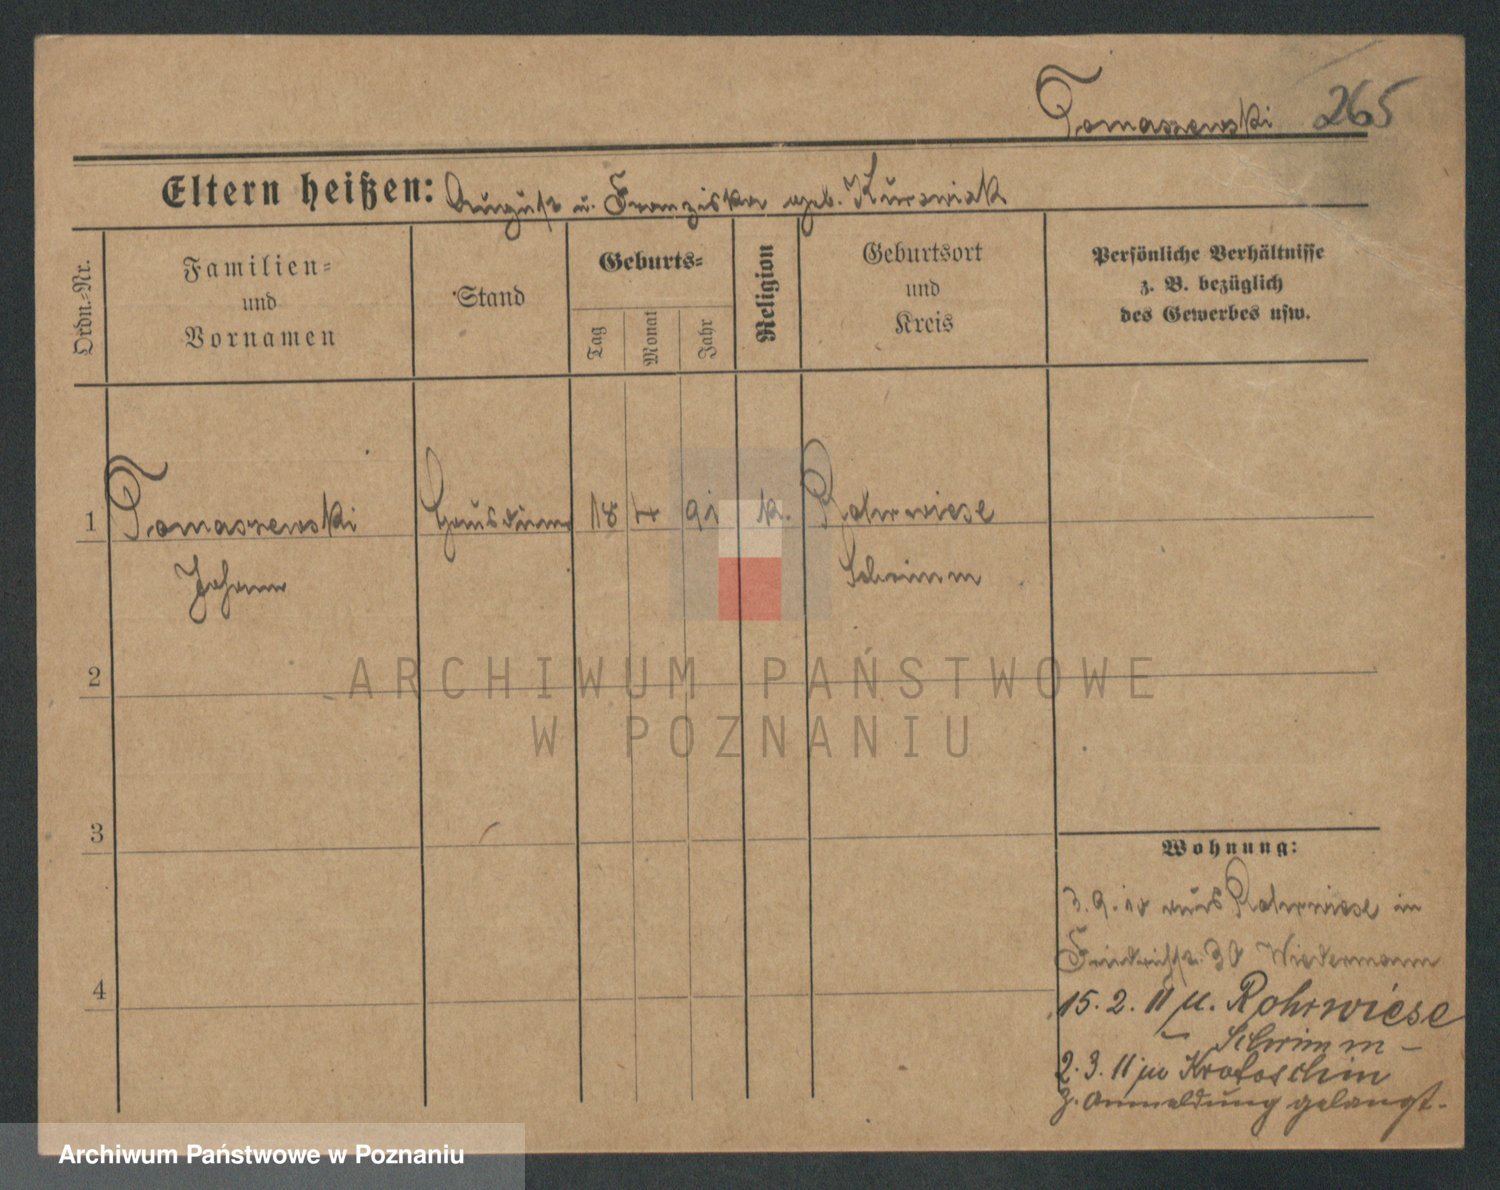 Tomaszewski 265
Eltern heißen: August u. Franziska geb. Kurowiak
Ordn.-Nr.
Familien-
und
Vornamen
Stand
Geburts-
Tag
Monat
Jahr
Religion
Geburtsort
und
Kreis
Persönliche Verhältnisse
z. B. bezüglich
des Gewerbes usw.
1 Tomaszewski Hausdiener 18 4 91 k. Rohrwiese
Johann Schrimm
2
ARCHIWUM PAŃSTWOWE
W POZNANIU
3
Wohnung:
3.9.10 aus Rohrwiese in
Friedrichstr. 30 Wiedermann
4
15.2.11 n. Rohrwiese
Schrimm –
2.3.11 in Krotoschin
z. Anmeldung gelangt.
Archiwum Państwowe w Poznaniu